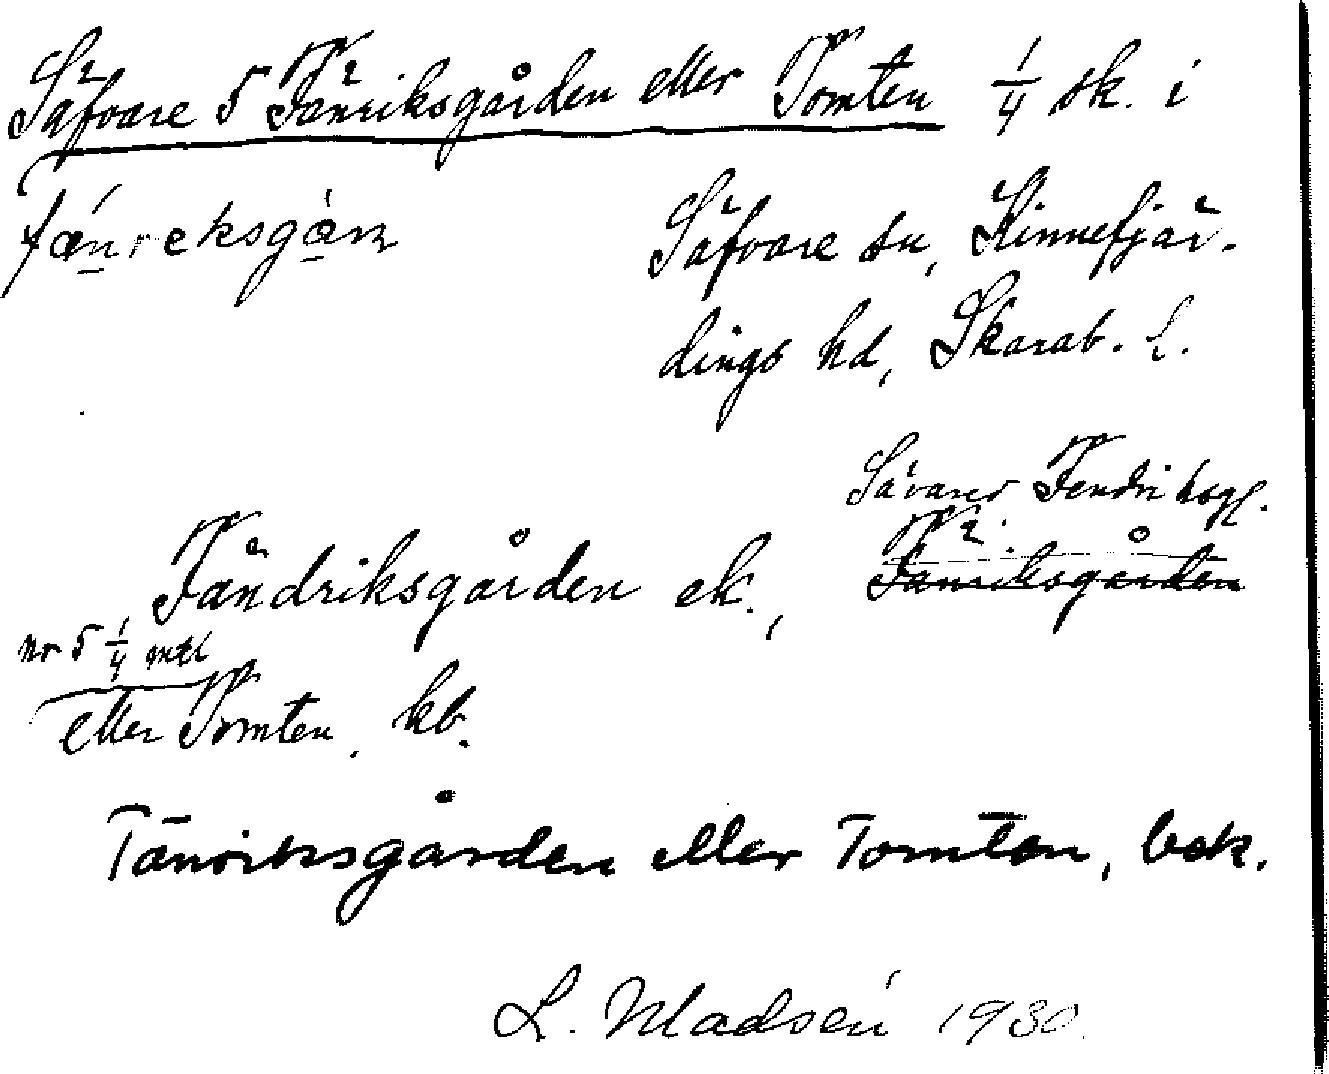 Säfvare 5 Fänriksgården eller Tomten 1/4 sk. i
fæ̀nreksgàɳ
Säfvare sn, Kinnefjär-
dings hd, Skarab. L.
Sävares Fendriksg.
Fändriksgården ek., Fänriksgården
nr 5 1/4 mtl
eller Tomten kb.
Fänriksgården eller Tomten, bek.
L. Madsén 1930